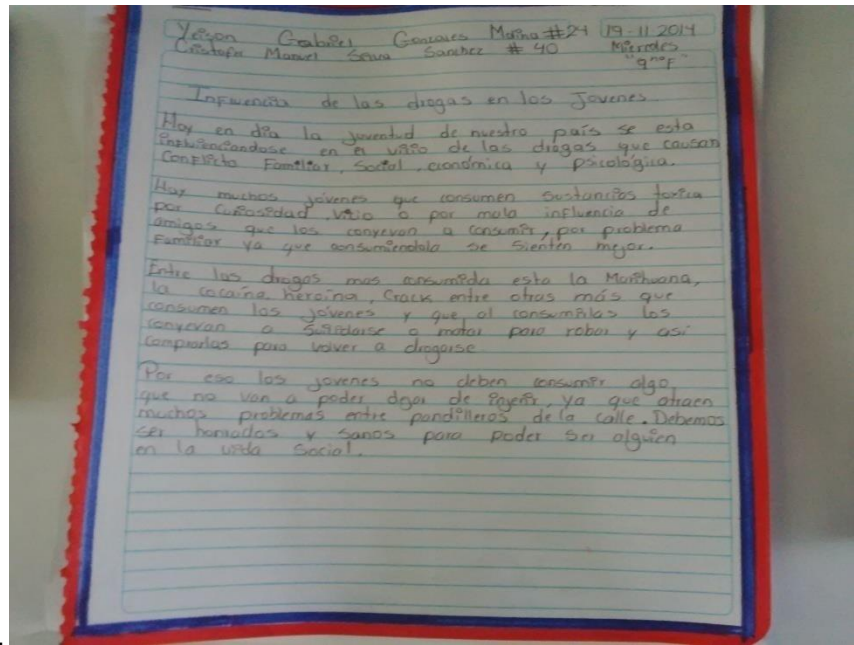 Yeison Gabriel Gonzales Morina #24 19-11-2014
Cristofer Manuel Sanchez #40 Miercoles
"9noF"
Influencia de las drogas en los Jovenes
Hoy en día la juventud de nuestro país se esta
influenciandose en el vicio de las drogas que causan
Conflicto Familiar, Social, económica y psicológica.
Hay muchos jóvenes que consumen sustancias toxica
por curiosidad, vicio o por mala influencia de
amigos que los conyevan a consumir, por problema
Familiar ya que consumiendola se sienten mejor.
Entre las drogas mas consumida esta la Marihuana,
la cocaína, heroína, Crack entre otras más que
consumen los jóvenes y que al consumilas los
conyevan a suicidarse o matar para robar y así
comprarlas para volver a drogarse
Por eso los jovenes no deben consumir algo
que no van a poder dejar de, ya que atraen
muchos problemas entre pandilleros dela calle. Debemos
ser honrados y sanos para poder ser alguien
en la vida social.